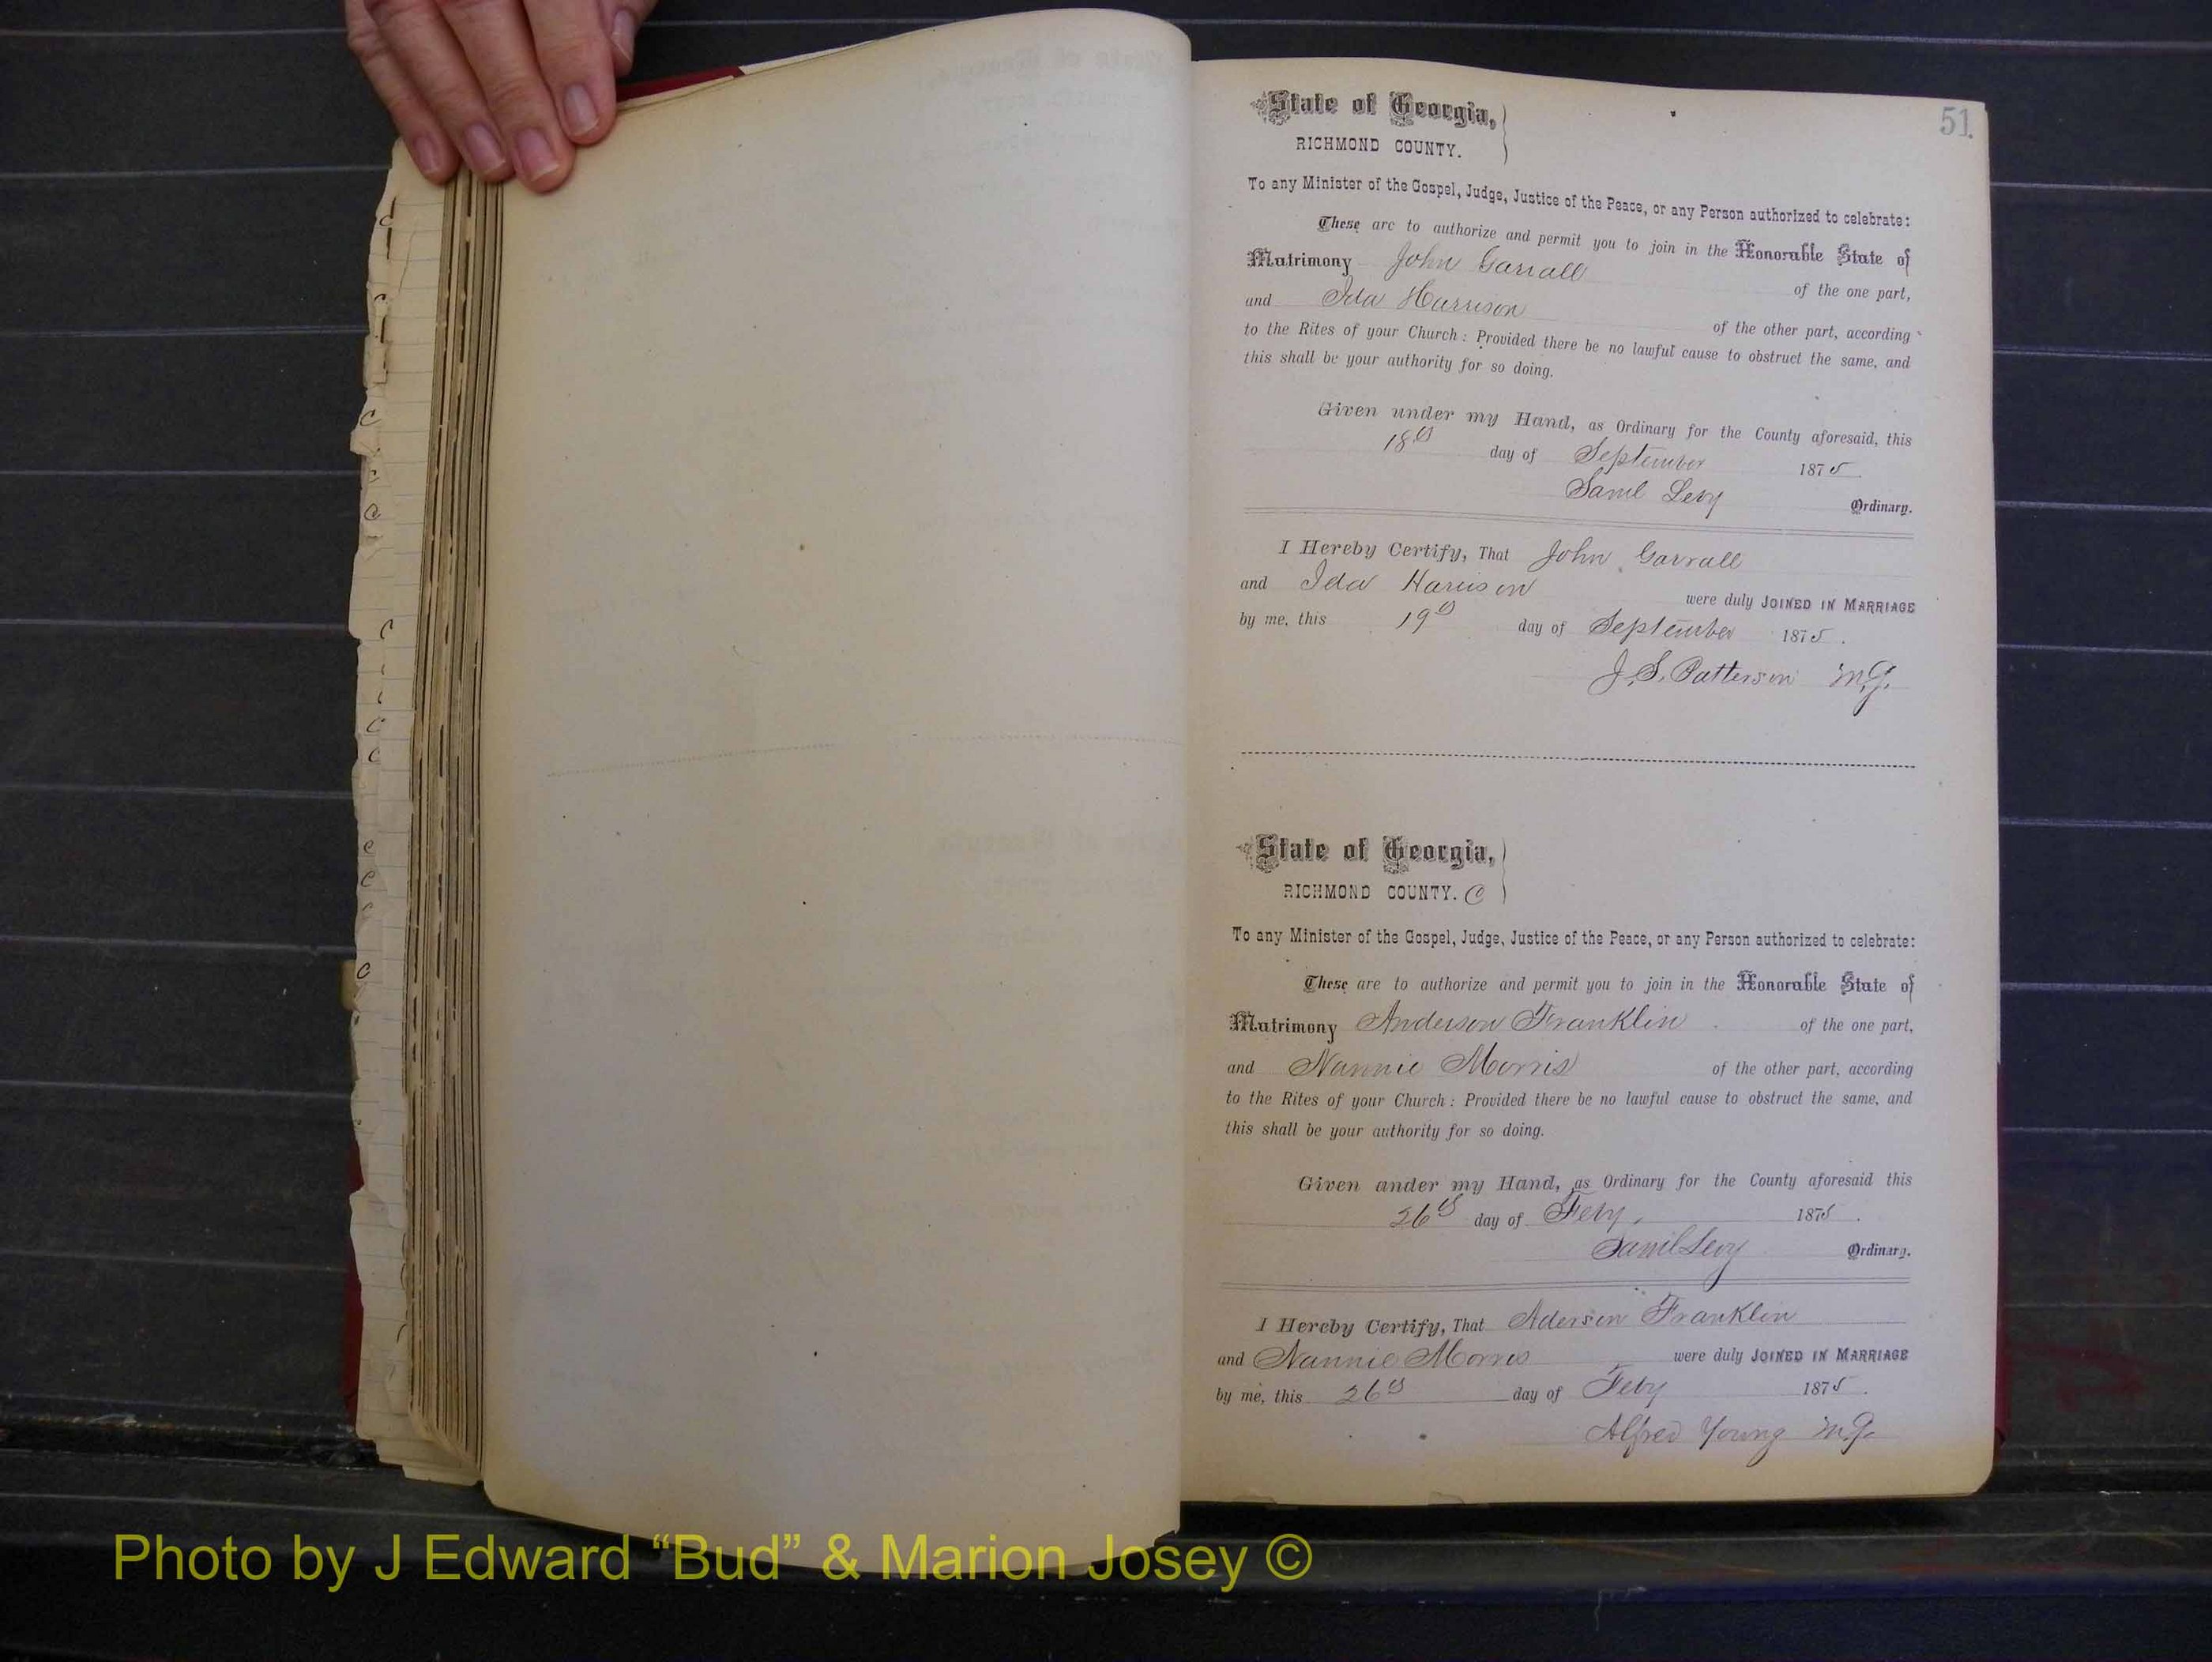 51.
State of Georgia,
RICHMOND COUNTY.
To any Minister of the Gospel, Judge, Justice of the Peace, or any Person authorized to celebrate:
These are to authorize and permit you to join in the Honorable State of
Matrimony John Garrall of the one part,
and Ida Harrison of the other part, according
to the Rites of your Church: Provided there be no lawful cause to obstruct the same, and
this shall be your authority for so doing.
Given under my Hand, as Ordinary for the County aforesaid, this
18th day of September 1875.
Saml Levy Ordinary.
I Hereby Certify, That John Garrall
and Ida Harrison were duly JOINED IN MARRIAGE
by me, this 19th day of September 1875.
J. S. Patterson M.G.
State of Georgia,
RICHMOND COUNTY. C
To any Minister of the Gospel, Judge, Justice of the Peace, or any Person authorized to celebrate:
These are to authorize and permit you to join in the Honorable State of
Matrimony Anderson Franklin of the one part,
and Nannie Morris of the other part, according
to the Rites of your Church: Provided there be no lawful cause to obstruct the same, and
this shall be your authority for so doing.
Given under my Hand, as Ordinary for the County aforesaid this
26th day of Feby, 1875.
Saml Levy Ordinary.
I Hereby Certify, That Aderson Franklin
and Nannie Morris were duly JOINED IN MARRIAGE
by me, this 26th day of Feby 1875.
Alfred Young M.G.
Photo by J Edward “Bud” & Marion Josey ©